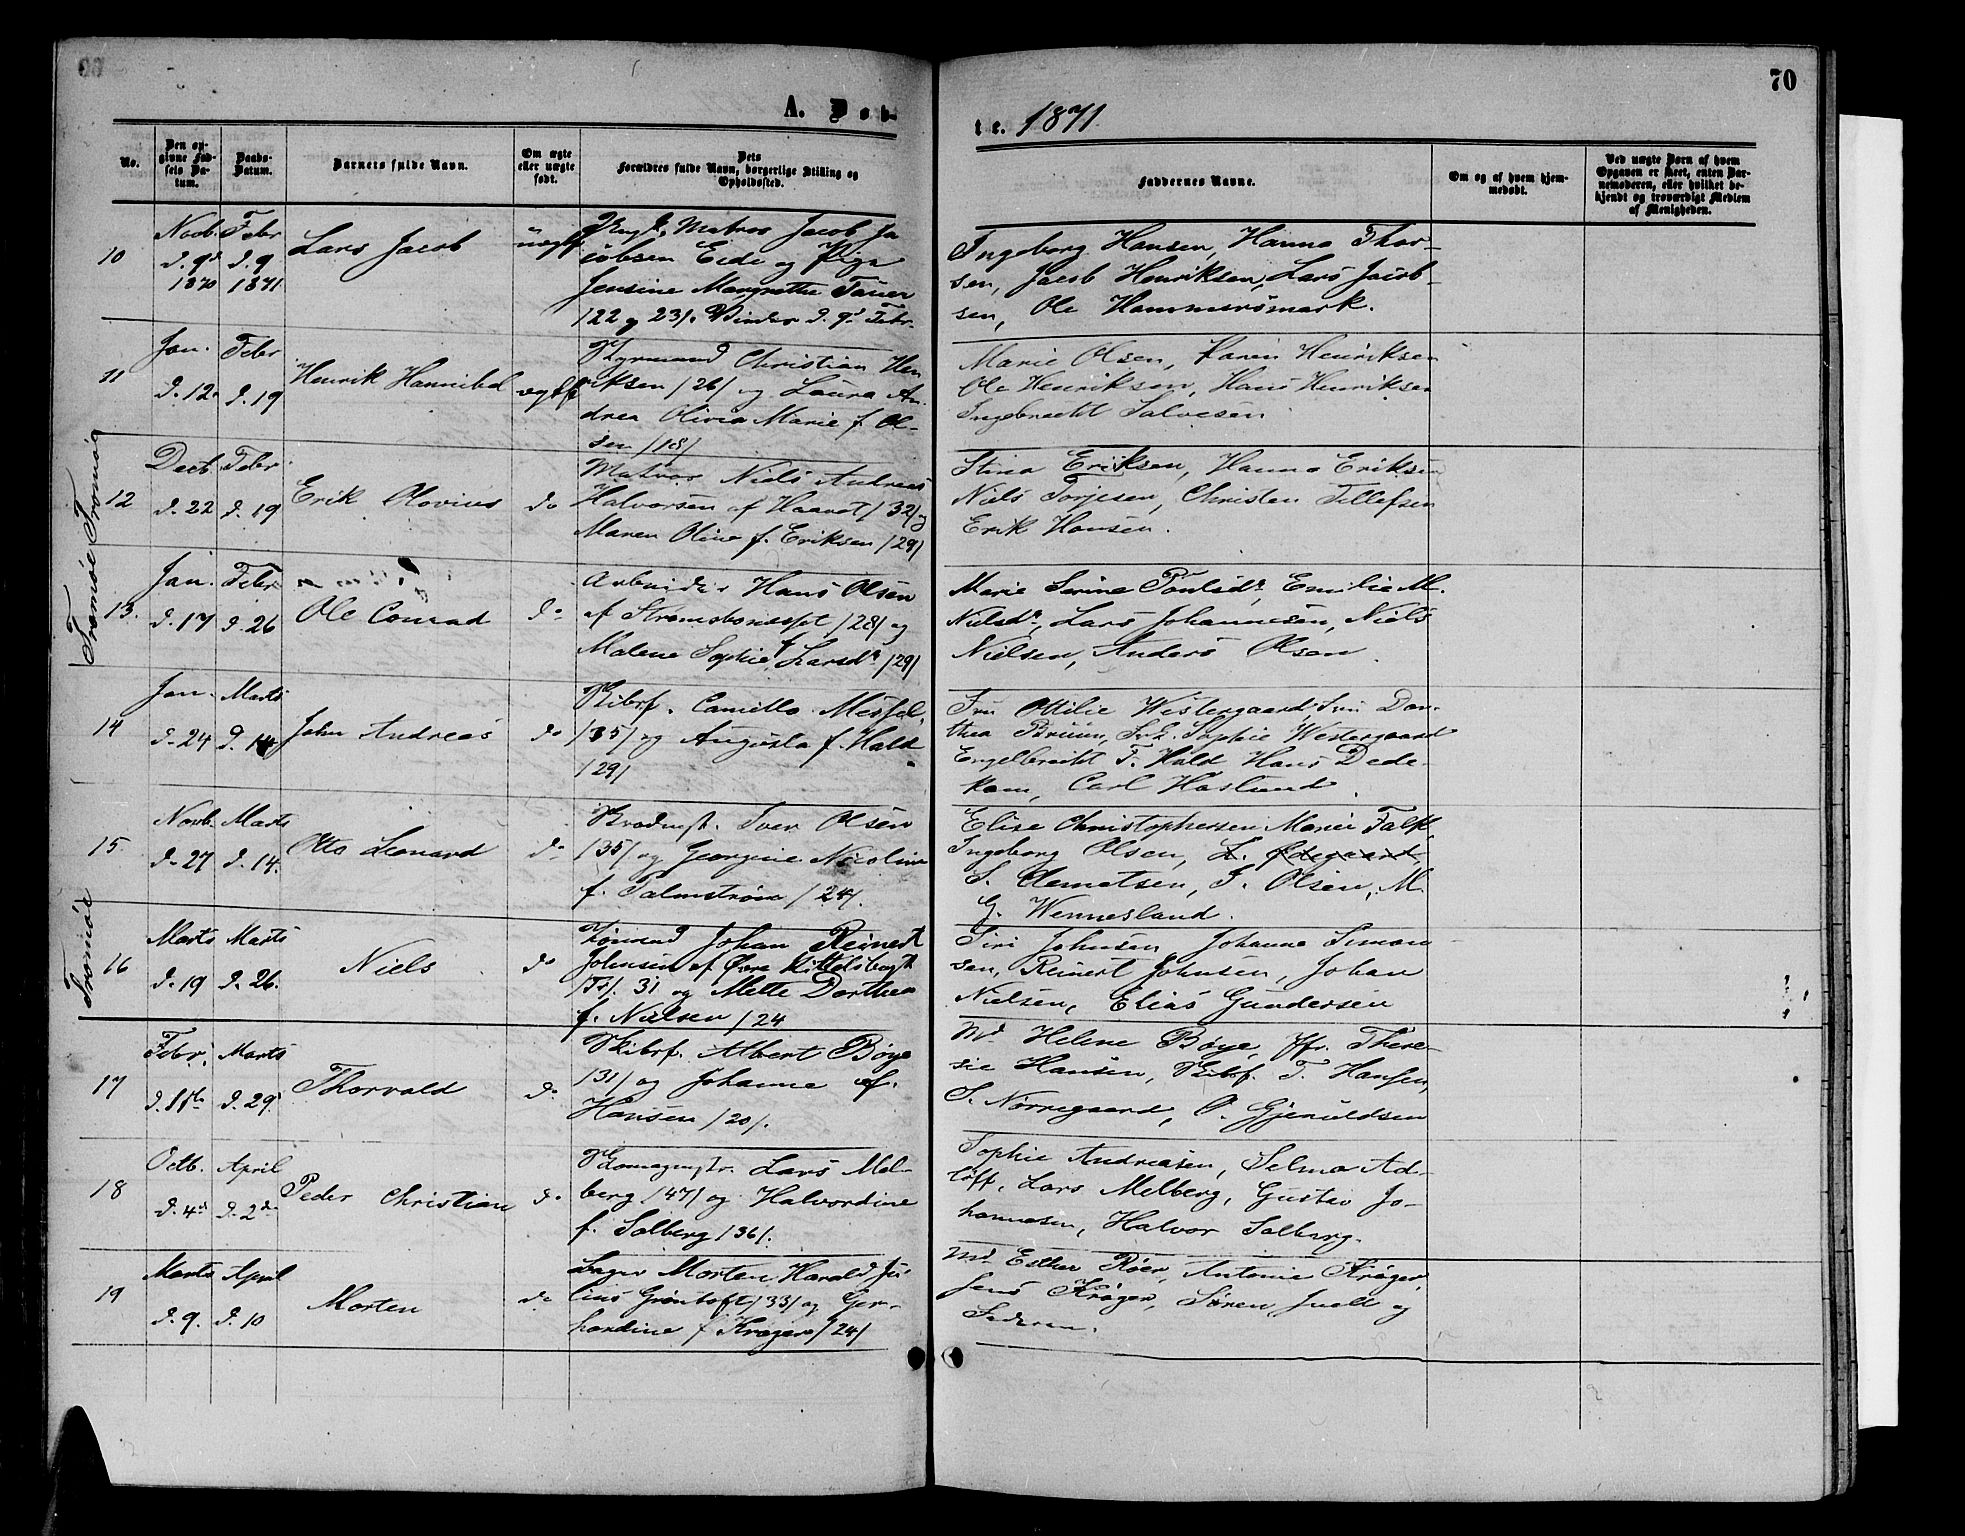 70
A. Døb-
te. 1871.
No.
Den opgivne Fødsels Datum.
Daabs-Datum.
Barnets fulde Navn.
Om ægte eller uægte født.
Forældres fulde Navn, borgerlige Stilling og Opholdssted.
Faddernes Navne.
Om og af hvem hjemmedøbt.
Ved uægte Børn af hvem Opgaven er skeet, enten Barnemoderen, eller hvilket bekjendt og troværdigt Medlem af Menigheden.
10
Novb. d. 9d 1870
Febr d. 9 1871
Lars Jacob
uægte
Ungk. Matros Jacob Ja-
cobsen Eide og Pige
Jensine Margrethe Tauer
122 og 23/. Viede d. 9d Febr.
Ingeborg Hansen, Hanna Thor-
sen, Jacob Henriksen, Lars Jacob-
sen, Ole Hammersmark.
11
Jan. d. 12.
Febr d. 19
Henrik Hannibal
ægte
Styrmand Christian Hen
riksen /26/ og Laura An-
drea Olivia Marie f. Ol-
sen /18/
Marie Olsen, Karen Henriksen
Ole Henriksen, Hans Henriksen
Ingebrecht Salvesen
Tromøe Tromøe
12
Decb. d. 22
Febr. d. 19
Erik Olovius
do
Matros Niels Andreas
Halvorsen af Haavet /32/ og
Maren Oline f. Eriksen /29/
Stina Eriksen, Hanna Eriksen
Niels Torjesen, Christen Tellefsen
Erik Hansen.
13.
Jan. d. 17
Febr d. 26
Ole Conrad
do
Arbeider Hans Olsen
af Strømsbonesset /28/ og
Malene Sophie f. Larsdr /29/
Marie Serine Poulsdr, Emilie M.
Nielsdr, Lars Johannesen, Niels
Nielsen, Anders Olsen.
14
Jan. d. 24
Marts d. 14
John Andreas
do
Skibsf. Camillo Messel,
/35/ og Augusta f. Hald
/29/
Fru Ottilie Westergaard, Fru Dor-
thea Bruun, Frk. Sophie Westergaard
Engelbrecht T. Hald Hans Dede-
kam, Carl Haslund.
15
Novb. d. 27
Marts d. 14.
Otto Leonard
do
Iver Olsen
/35/ og Georgine Nicoline
f. Palmstrøm /24/.
Elise Christophersen Marie Falk,
Ingeborg Olsen, L. Ødegaard,
S. Clemetsen, I. Olsen, M.
G. Wennesland.
Tromøe
16
Marts d. 19
Marts d. 26.
Niels
do
Tømmd Johan Reinert
Johnsen af Øvre Kittelsbugt
/Ts/. 31 og Mette Dorthea
f. Nielsen /24
Siri Johnsen, Johanne Simon
sen, Reinert Johnsen, Johan
Nielsen, Elias Gundersen
17
Febr. d. 11te
Marts d. 29.
Thorvald
do
Skibsf. Albert Bøye
/31/ og Johanne f.
Hansen /20/.
Md Helene Bøye, Jfr. There-
sie Hansen, Skibsf. T. Hansen,
S. Nørregaard, O. Gjeruldsen
18
Octb. d. 4d
April d. 2den
Peder Christian
do
Skomagermstr. Lars Mel-
berg /47/ og Halvordine
f. Solberg /36/.
Sophie Andreasen, Selma Ad-
loff, Lars Melberg, Gustav Jo-
hannesen, Halvor Solberg.
19
Marts d. 9.
April d. 10
Morten
do
Bager Morten Harald Ju
lius Grøntoft /33/ og Ger-
hardine f Krøger /24/
Md Esther Røer, Antonie Krøger,
Jens Krøger, Søren Juell og
Faderen.